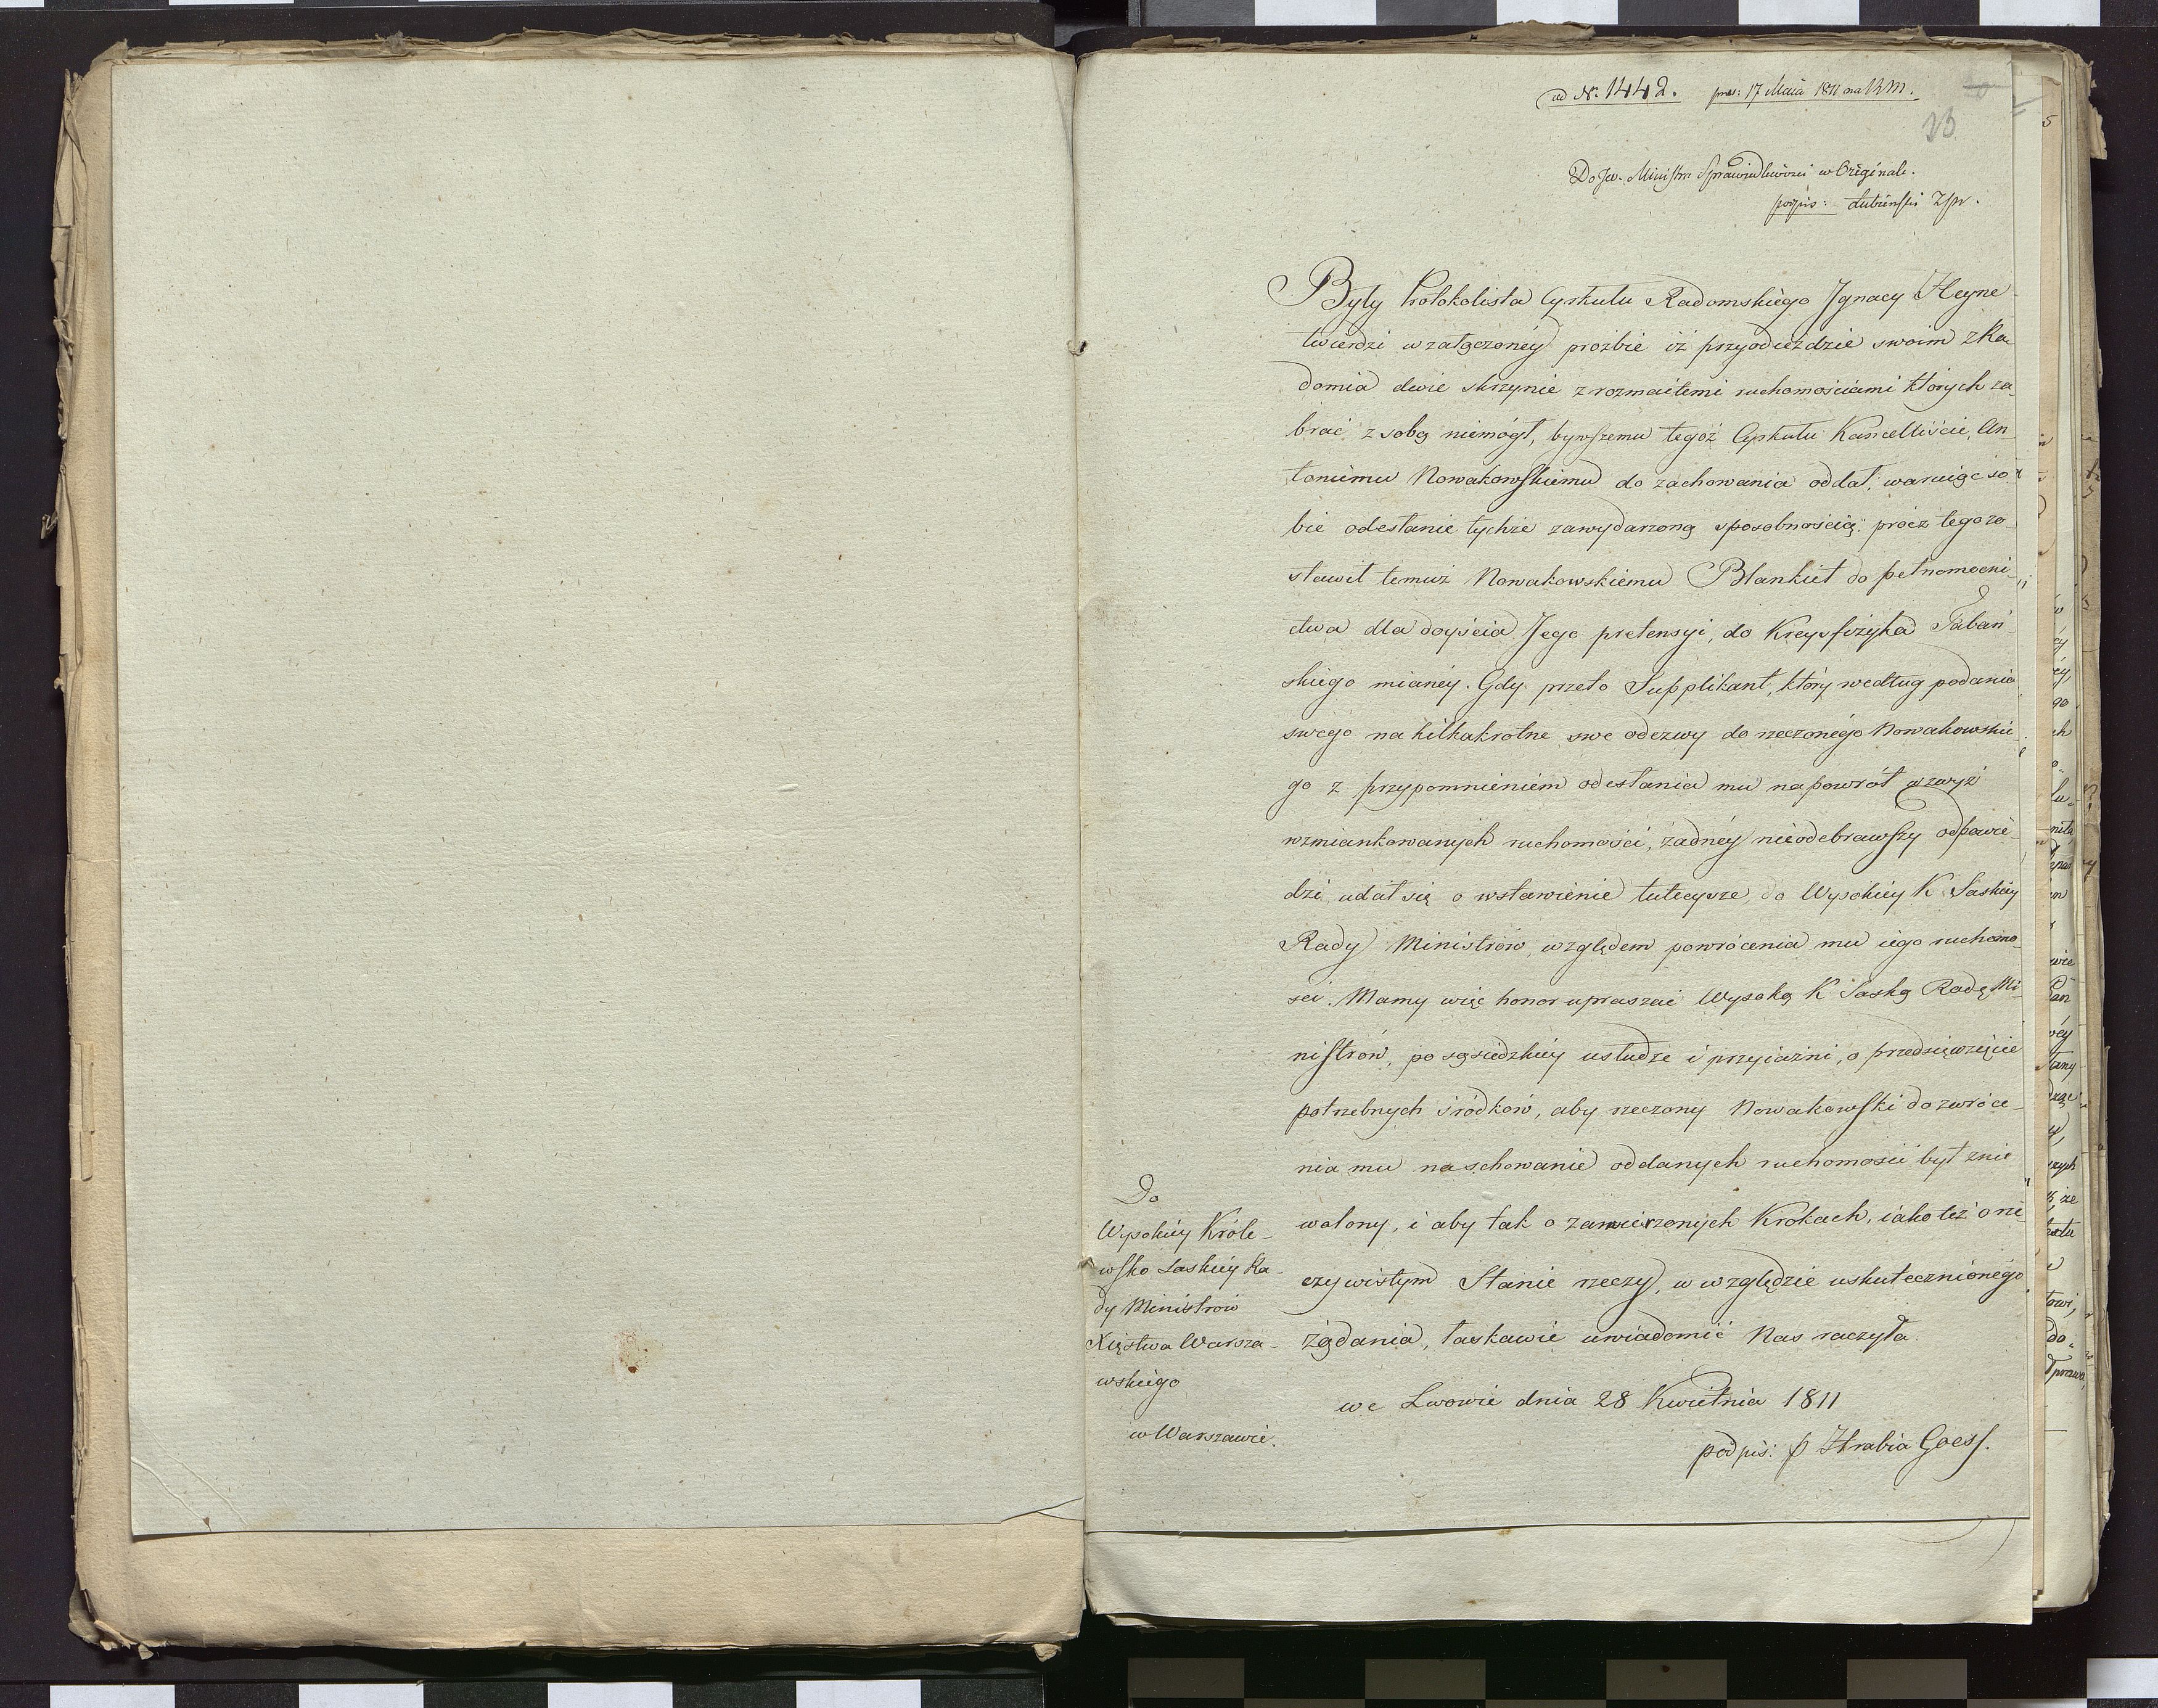 ad N. 1442. pres: 17 Maia 1811 na RM.
23
Do Jw. Ministra Sprawiedliwości w Originale.
podpis: Łubieński Zpr.
Były Protokolista Cyrkułu Radomskiego Jgnacy Heyne
twierdzi w załączonéy proźbie iż przy odieździe swoim z Ra-
domia dwie skrzynie z rozmaitemi ruchomościami których za-
brać z sobą niemógł, bywszemu tegoż Cyrkułu Kancelliście, An-
toniemu Nowakowskiemu do zachowania oddał, waruiąc so-
bie odesłanie tychże za wydarzoną sposobnością: prócz tego zo-
stawił temuż Nowakowskiemu Blankiet do pełnomocni-
ctwa dla doyścia Jego pretensyi, do Kreysfizyka Tabań-
skiego mianéy. Gdy przeto Supplikant, który według podania
swego na kilkakrotne swe odezwy do rzeczonégo Nowakowskie-
go z przypomnieniem odesłania mu napowrót wzwyż
wzmiankowanych ruchomości, żadnéy nieodebrawszy odpowie-
dzi udał się o wstawienie tuteysze do Wysokiéy K Saskiéy
Rady Ministrów, względem powrócenia mu iego ruchomo-
ści. Mamy więc honor upraszać Wysoką K Saską Radę Mi-
nistrów, po sąsiedzkiéy usłudze i przyiaźni, o przedsięwzięcie
potrzebnych śródków, aby rzeczony Nowakowski do zwróce-
nia mu na schowanie oddanych ruchomości był znie-
wolony, i aby tak o zamierzonych Krokach, iako też o rze-
czywistym Stanie rzeczy, w względzie uskutecznionégo
żądania, łaskawie uwiadomić Nas raczyła
we Lwowie dnia 28 Kwietnia 1811
podpis: p Hrabia Goess.
Do
Wysokiéy Króle-
wsko Saskiéy Ra-
dy Ministrów
Xięstwa Warsza-
wskiégo
w Warszawie.